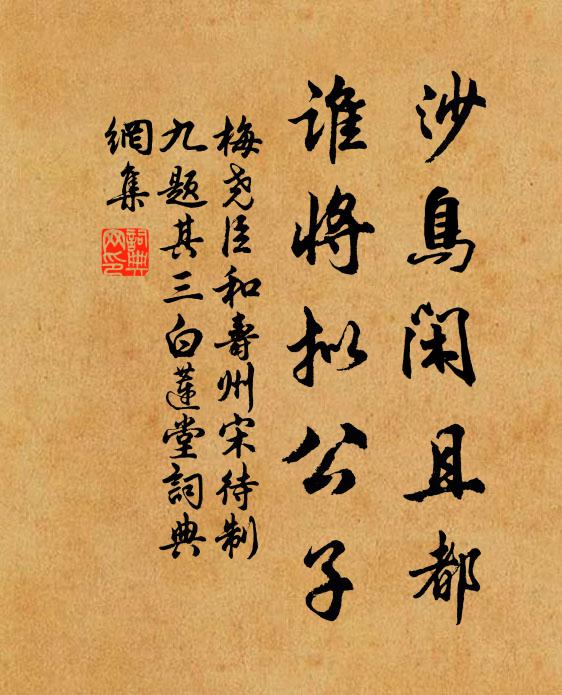 沙鳥閑且都
誰將拟公子
梅堯臣和壽州宋待制
九題其三白蓮堂詞典
網集
詞典網印